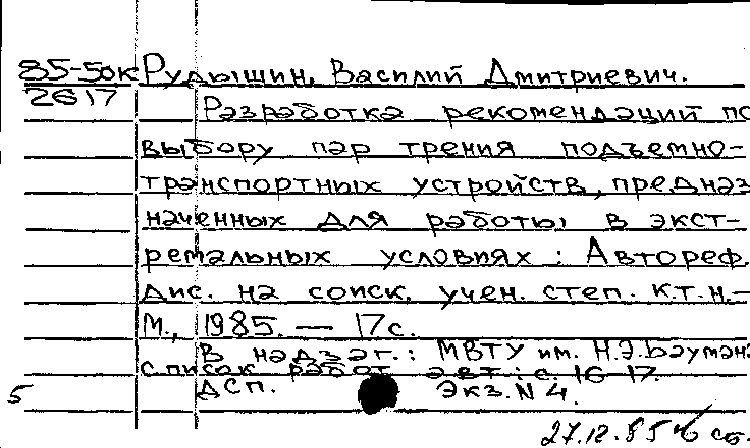 85-50к Рудышин, Василий Дмитриевич.
2617 Разработка рекомендаций по
выбору пар трения подъемно-
транспортных устройств, предназ
наченных для работы в экст-
ремальных условиях : Автореф.
дис. на соиск. учен. степ. к.т.н.-
М., 1985. — 17 с.
В надзаг.: МВТУ им. Н.Э.Баумана
список работ авт.: с. 16-17.
5 ДСП. Экз. N 4.
27.12.85